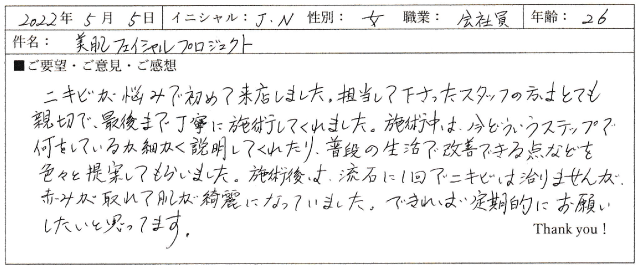 2022年 5月 5日 イニシャル：J.N 性別： 女 職業： 会社員 年齢：26
件名： 美肌フェイシャルプロジェクト
■ご要望・ご意見・ご感想
ニキビが悩みで初めて来店しました。担当して下さったスタッフの方はとても
親切で、最後まで丁寧に施術してくれました。施術中は、今どういうステップで
何をしているか細かく説明してくれたり、普段の生活で改善できる点などを
色々と提案してもらいました。施術後は、流石に1回でニキビは治りませんが、
赤みが取れて肌が綺麗になっていました。できれば定期的にお願い
したいと思ってます。
Thank you！